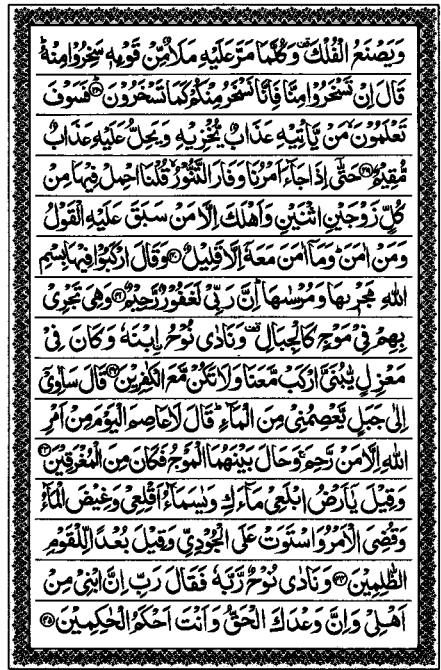 وَيَصْنَعُ الْفُلْكَ ۟ وَكُلَّمَا مَرَّ عَلَيْهِ مَلَاٌ مِّنْ قَوْمِهٖ سَخِرُوْا مِنْهُ ؕ
قَالَ اِنْ تَسْخَرُوْا مِنَّا فَاِنَّا نَسْخَرُ مِنْكُمْ كَمَا تَسْخَرُوْنَ ؕ﴿۳۸﴾ فَسَوْفَ
تَعْلَمُوْنَ ۙ مَنْ يَّاْتِيْهِ عَذَابٌ يُّخْزِيْهِ وَيَحِلُّ عَلَيْهِ عَذَابٌ
مُّقِيْمٌ ﴿۳۹﴾ حَتّٰۤى اِذَا جَآءَ اَمْرُنَا وَفَارَ التَّنُّوْرُ ۙ قُلْنَا احْمِلْ فِيْهَا مِنْ
كُلٍّ زَوْجَيْنِ اثْنَيْنِ وَاَهْلَكَ اِلَّا مَنْ سَبَقَ عَلَيْهِ الْقَوْلُ
وَمَنْ اٰمَنَ ؕ وَمَاۤ اٰمَنَ مَعَهٗۤ اِلَّا قَلِيْلٌ ﴿۴۰﴾ وَقَالَ ارْكَبُوْا فِيْهَا بِسْمِ
اللّٰهِ مَجْرٖىهَا وَمُرْسٰىهَا ؕ اِنَّ رَبِّيْ لَغَفُوْرٌ رَّحِيْمٌ ﴿۴۱﴾ وَهِيَ تَجْرِيْ
بِهِمْ فِيْ مَوْجٍ كَالْجِبَالِ ۟ وَنَادٰى نُوْحُ اۨبْنَهٗ وَكَانَ فِيْ
مَعْزِلٍ يّٰبُنَيَّ ارْكَبْ مَّعَنَا وَلَا تَكُنْ مَّعَ الْكٰفِرِيْنَ ﴿۴۲﴾ قَالَ سَاٰوِيْۤ
اِلٰى جَبَلٍ يَّعْصِمُنِيْ مِنَ الْمَآءِ ؕ قَالَ لَا عَاصِمَ الْيَوْمَ مِنْ اَمْرِ
اللّٰهِ اِلَّا مَنْ رَّحِمَ ۚ وَحَالَ بَيْنَهُمَا الْمَوْجُ فَكَانَ مِنَ الْمُغْرَقِيْنَ ﴿۴۳﴾
وَقِيْلَ يٰۤاَرْضُ ابْلَعِيْ مَآءَكِ وَيٰسَمَآءُ اَقْلِعِيْ وَغِيْضَ الْمَآءُ
وَقُضِيَ الْاَمْرُ وَاسْتَوَتْ عَلَى الْجُوْدِيِّ وَقِيْلَ بُعْدًا لِّلْقَوْمِ
الظّٰلِمِيْنَ ﴿۴۴﴾ وَنَادٰى نُوْحٌ رَّبَّهٗ فَقَالَ رَبِّ اِنَّ ابْنِيْ مِنْ
اَهْلِيْ وَاِنَّ وَعْدَكَ الْحَقُّ وَاَنْتَ اَحْكَمُ الْحٰكِمِيْنَ ﴿۴۵﴾